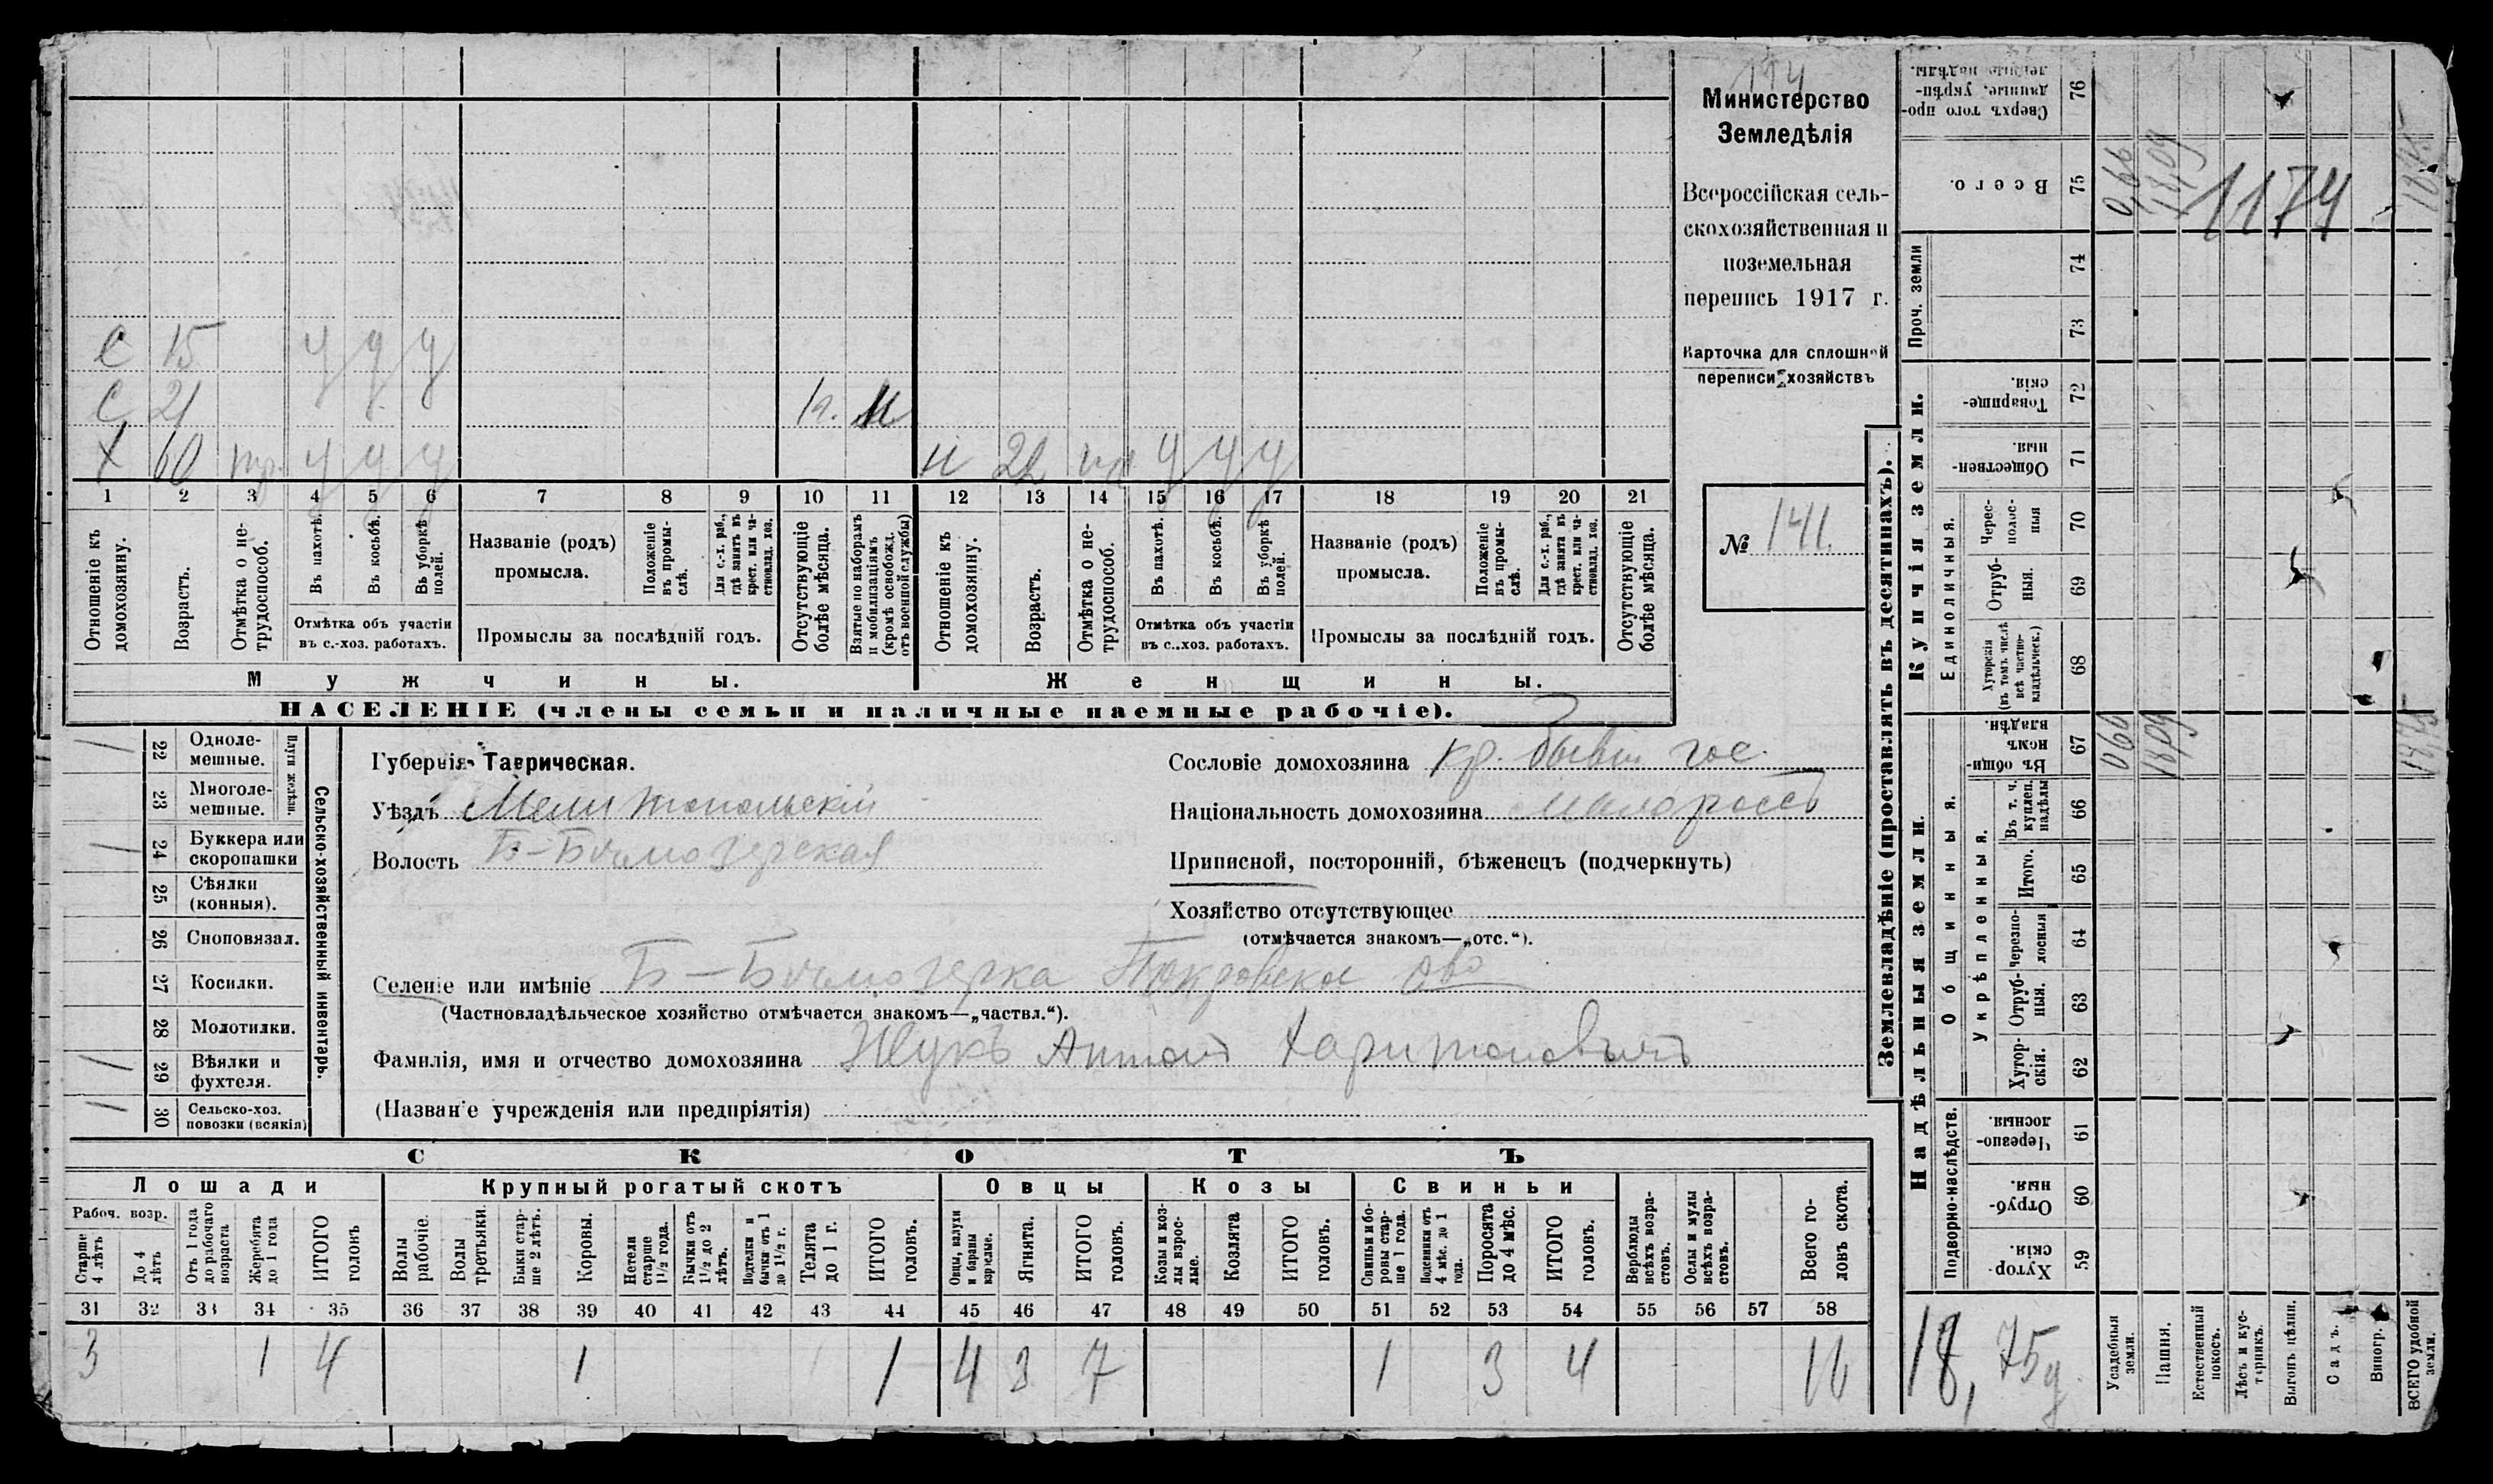 174
Министерство
Земледѣлія
Всероссійская сель-
скохозяйственная и
поземельная
перепись 1917 г.
Карточка для сплошной
переписи хозяйствъ
№ 141.
С 15 у у у
С 21 М
Х 60 у у у 22 у у у
1 2 3 4 5 6 7 8 9 10 11 12 13 14 15 16 17 18 19 20 21
Отношеніе къ домохозяину.
Возрастъ.
Отмѣтка о не-трудоспособ.
Въ пахотѣ.
Въ косьбѣ.
Въ уборкѣ полей.
Отмѣтка объ участіи
въ с.-хоз. работахъ.
Названіе (родъ)
промысла.
Положеніе въ промы-слѣ.
Для с.-х. раб., гдѣ занятъ въ крест. или ча-стновлад. хоз.
Промыслы за послѣдній годъ.
Отсутствующіе болѣе мѣсяца.
Взятые по наборамъ и мобилизаціямъ (кромѣ освобожд. отъ военной службы)
Отношеніе къ домохозяину.
Возрастъ.
Отмѣтка о не-трудоспособ.
Въ пахотѣ.
Въ косьбѣ.
Въ уборкѣ полей.
Отмѣтка объ участіи
въ с..хоз. работахъ.
Названіе (родъ)
промысла.
Положеніе въ промы-слѣ.
Для с.-х. раб., гдѣ занята въ крест. или ча-стновлад. хоз.
Промыслы за послѣдній годъ.
Отсутствующіе болѣе мѣсяца.
Мужчины.
Женщины.
НАСЕЛЕНІЕ (члены семьи и наличные наемные рабочіе).
Сельско-хозяйственный инвентарь.
Плуги желѣзн.
22 Одноле-мешные. 1
23 Многоле-мешные.
24 Буккера или скоропашки 1
25 Сѣялки (конныя).
26 Сноповязал.
27 Косилки.
28 Молотилки.
29 Вѣялки и фухтеля. 1
30 Сельско-хоз. повозки (всякія) 1
Губернія Таврическая.
Уѣздъ Мелитопольскій
Волость Б-Бѣлозерская
Сословіе домохозяина кр. бывш гос.
Національность домохозяина малороссъ
Приписной, посторонній, бѣженецъ (подчеркнуть)
Хозяйство отсутствующее
(отмѣчается знакомъ—„отс.“).
Селеніе или имѣніе Б-Бѣлозерка Покровское
(Частновладѣльческое хозяйство отмѣчается знакомъ—„частвл.“).
Фамилія, имя и отчество домохозяина Жукъ Антонъ Харитоновичъ
(Названіе учрежденія или предпріятія)
СКОТЪ
Лошади
Крупный рогатый скотъ
Овцы
Козы
Свиньи
Рабоч. возр.
Старше 4 лѣтъ
До 4 лѣтъ
Отъ 1 года до рабочаго возраста
Жеребята до 1 года
ИТОГО головъ
Волы рабочіе.
Волы третьяки.
Быки стар-ше 2 лѣтъ.
Коровы.
Нетели старше 1½ года.
Бычки отъ 1½ до 2 лѣтъ.
Подтелки и бычки отъ 1 до 1½ г.
Телята до 1 г.
ИТОГО головъ.
Овцы, валухи и бараны взрослые.
Ягнята.
ИТОГО головъ.
Козы и коз-лы взрос-лые.
Козлята
ИТОГО головъ.
Свиньи и бо-ровы стар-ше 1 года.
Подсвинки отъ 4 мѣс. до 1 года.
Поросята до 4 мѣс.
ИТОГО головъ.
Верблюды всѣхъ возра-стовъ.
Ослы и мулы всѣхъ возра-стовъ.
Всего го-ловъ скота.
31 32 33 34 35 36 37 38 39 40 41 42 43 44 45 46 47 48 49 50 51 52 53 54 55 56 57 58
3 1 4 1 1 4 3 7 1 3 4 16
Землевладѣніе (проставлять въ десятинахъ).
Купчія земли.
Надѣльныя земли.
Сверхъ того про-данные, укрѣп-ленные надѣлы. 76
Всего. 75
Проч. земли 74 73
Товарище-скія. 72
Обществен-ныя 71
Единоличныя.
Черес-полос-ныя 70
Отруб-ныя. 69
Хуторскія (въ томъ числѣ всѣ частно-владѣльческ.) 68
Общинныя.
Въ общин-номъ владѣн. 67
Укрѣпленныя.
Въ т. ч. куплен. надѣлы 66
Итого. 65
Черезпо-лосныя 64
Отруб-ныя. 63
Хутор-скія. 62
Подворно-наслѣдств.
Черезпо-лосныя. 61
Отруб-ныя. 60
Хутор-скія. 59
0,66 18,09 1174 18,75
0,66 18,09 18,75
18,75 д.
Усадебныя земли.
Пашня.
Естественный покосъ.
Лѣсъ и кус-тарникъ.
Выгонъ цѣлин.
Садъ.
Виногр.
ВСЕГО удобной земли.